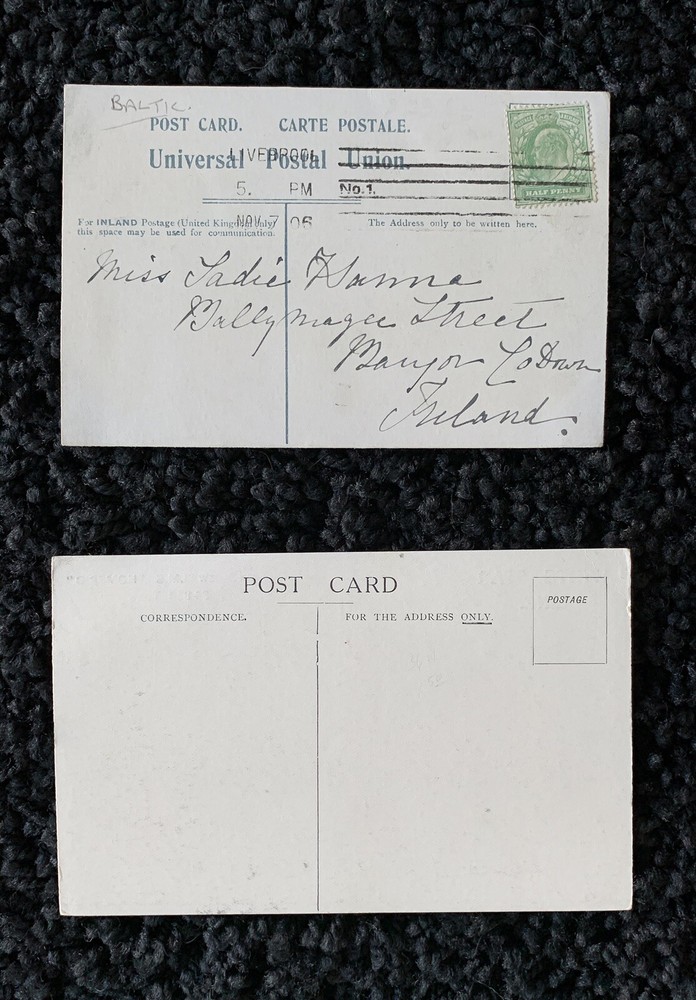 BALTIC.
POST CARD. CARTE POSTALE.
Universal Postal Union.
LIVERPOOL
5. PM No.1.
NOV 7 06
HALF PENNY
For INLAND Postage (United Kingdom only)
this space may be used for communication.
The Address only to be written here.
Miss Sadie Hanna
Ballymagee Street
Bangor Co Down
Ireland.
POST CARD
CORRESPONDENCE.
FOR THE ADDRESS ONLY.
POSTAGE